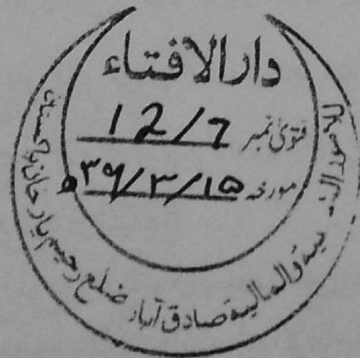 دارالافتاء
فتویٰ نمبر 12/7
مورخہ ۳۹/۳/۱۵ھ
صادق آباد ضلع رحیم یار خان پاکستان